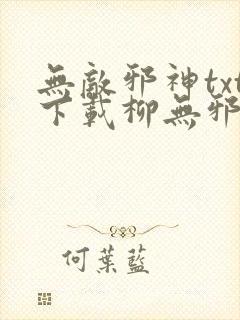 無敵邪神txt
下載柳無邪
何葉藍